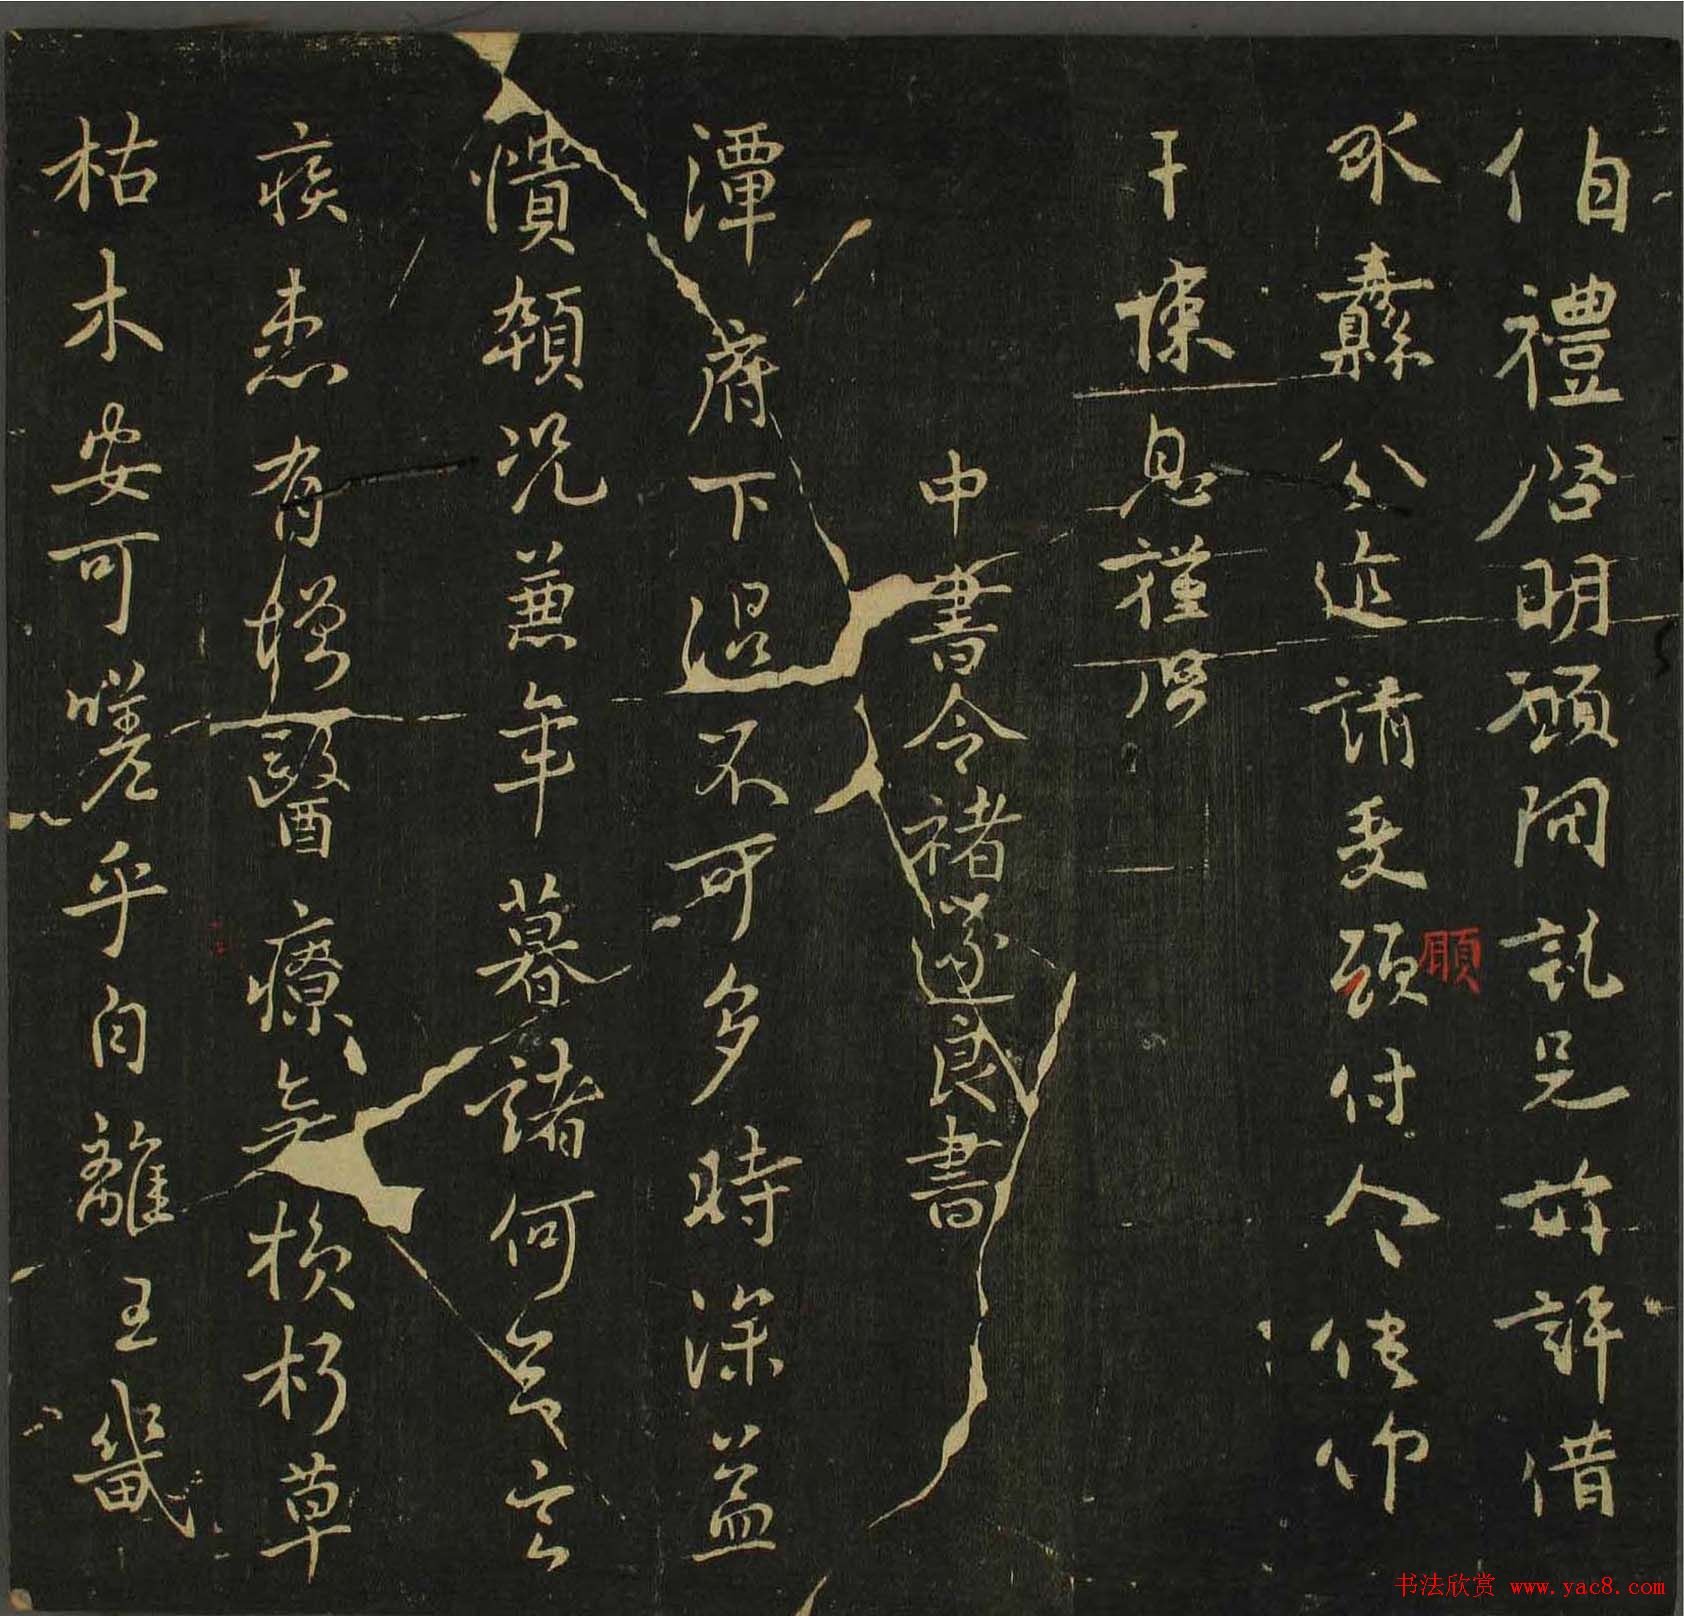 伯禮啓明願同訊兄許借
承纛公迹請受頭付令使作
願
干悚息謹啓
中書令褚遂良書
潭府下濕不可多時深益
憒頓況兼年暮諸何足言
疾患有增醫療無損朽草
枯木安可嗟乎自離王畿
书法欣赏 www.yac8.com